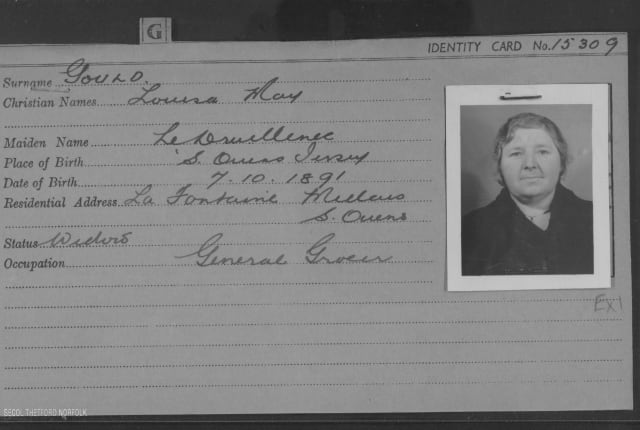 G
IDENTITY CARD No. 15309
Surname GOULD.
Christian Names Louisa May
Maiden Name Le Druillenec
Place of Birth S. Ouens Jersey
Date of Birth 7. 10. 1891
Residential Address La Fontaine Millais
S. Ouens
Status Widow
Occupation General Grocer
Ex1
SEDOL THETFORD NORFOLK